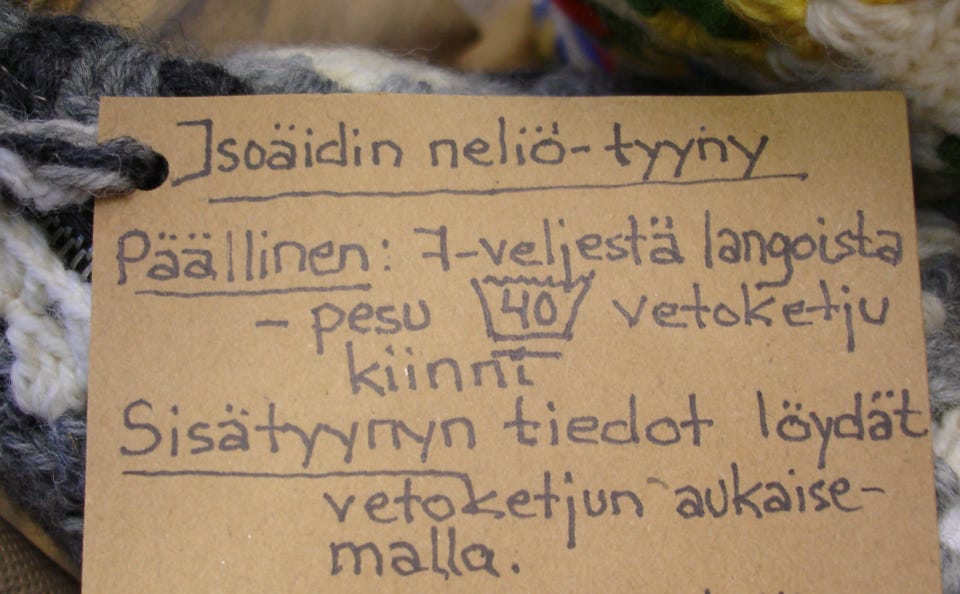 Isoäidin neliö-tyyny
Päällinen: 7-veljestä langoista
- pesu 40 vetoketju
kiinni
Sisätyynyn tiedot löydät
vetoketjun aukaise-
malla.